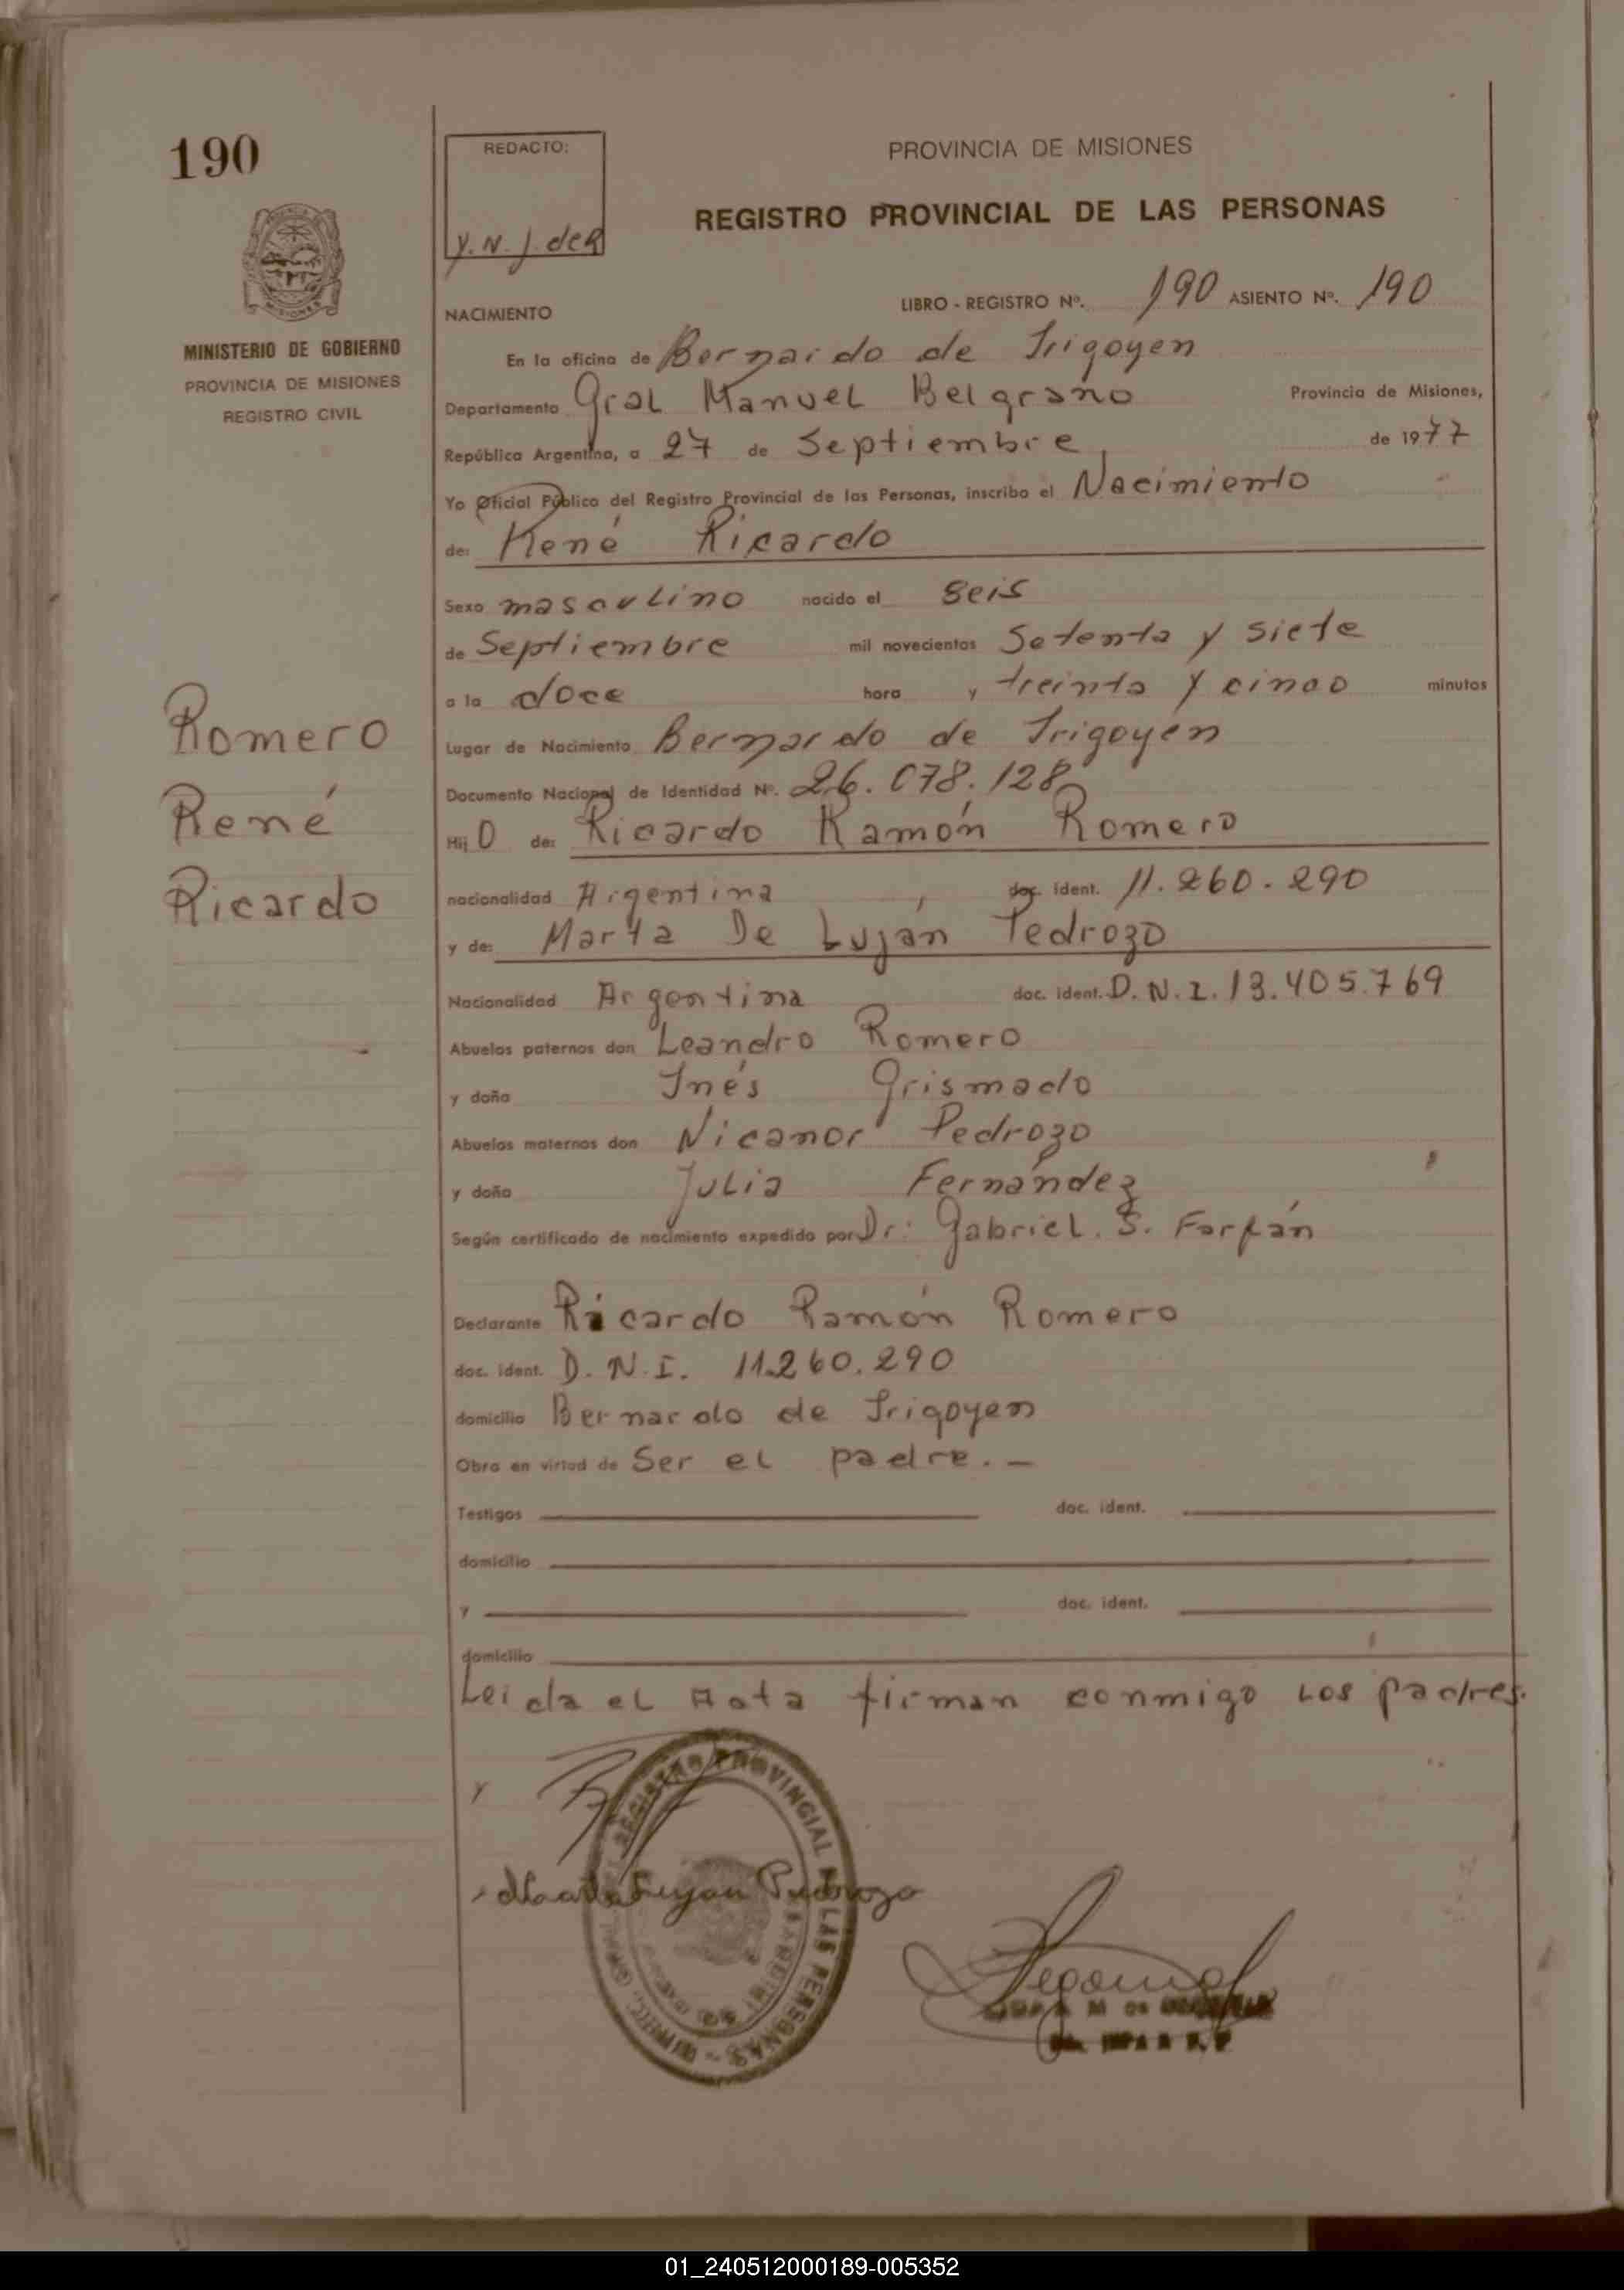 190
REDACTO:
PROVINCIA DE MISIONES
REGISTRO PROVINCIAL DE LAS PERSONAS
Y.N.J. deR
MINISTERIO DE GOBIERNO
PROVINCIA DE MISIONES
REGISTRO CIVIL
NACIMIENTO LIBRO - REGISTRO Nº. 190 ASIENTO Nº. 190
En la oficina de Bernardo de Irigoyen
Departamento Gral Manuel Belgrano Provincia de Misiones,
República Argentina, a 27 de Septiembre de 1977
Yo Oficial Público del Registro Provincial de las Personas, inscribo el Nacimiento
de: René Ricardo
Sexo masculino nacido el seis
de Septiembre mil novecientos Setenta y siete
a la doce hora y treinta y cinco minutos
Romero
René
Ricardo
Lugar de Nacimiento Bernardo de Irigoyen
Documento Nacional de Identidad Nº. 26.078.128
Hij O de: Ricardo Ramón Romero
nacionalidad Argentina doc. ident. 11.260.290
y de: Marta De Luján Pedrozo
Nacionalidad Argentina doc. ident. D.N.I. 13.405.769
Abuelos paternos don Leandro Romero
y doña Inés Grismado
Abuelos maternos don Nicanor Pedrozo
y doña Julia Fernández
Según certificado de nacimiento expedido por Dr: Gabriel. S. Farfán
Declarante Ricardo Ramón Romero
doc. ident. D.N.I. 11.260.290
domicilio Bernardo de Irigoyen
Obra en virtud de Ser el padre.-
Testigos doc. ident.
domicilio
y doc. ident.
domicilio
Leida el Acta firman conmigo los padres.
y
REGISTRO PROVINCIAL DE LAS PERSONAS
Marta Lujan Pedrozo
01_240512000189-005352